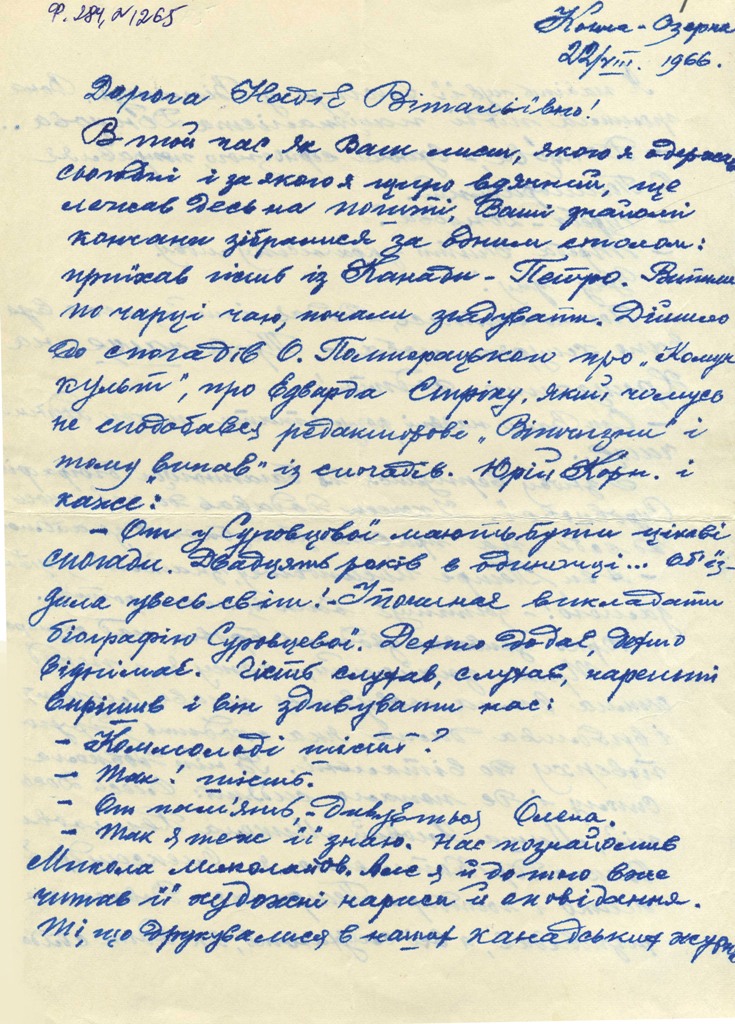 Ф. 284, №1265
Конча-Озерна
22/VIII. 1966.
Дорога Надіє Віталіївно!
В той час, як Ваш лист, якого я одержав
сьогодні і за якого я щиро вдячний, ще
лежав десь на пошті, Ваші знайомі
кончани зібралися за одним столом:
приїхав гість із Канади - Петро. Випили
по чарці чаю, почали згадувати. Дійшло
до спогадів О. Полторацького про „Комун
культ", про Едварда Стріху, який чомусь
не сподобався редакторові „Вітчизни" і
тому „випав" із спогадів. Юрій Корн. і
каже:
- От у Суровцової мають бути цікаві
спогади. Двадцять років в одиночці... Об'їз-
дила увесь світ! - І починає викладати
біографію Суровцевої. Дехто додає, дехто
віднімає. Гість слухав, слухав, нарешті
вирішив і він здивувати нас:
- Комсомолці шість?
- Так! шість.
- От пам'ять, - дивується Олена.
- Так я теж її знаю. Нас познайомив
Микола Миколайов. Але я й до того вже
читав її художні нариси й оповідання.
Ті, що друкувалися в наших канадських журна